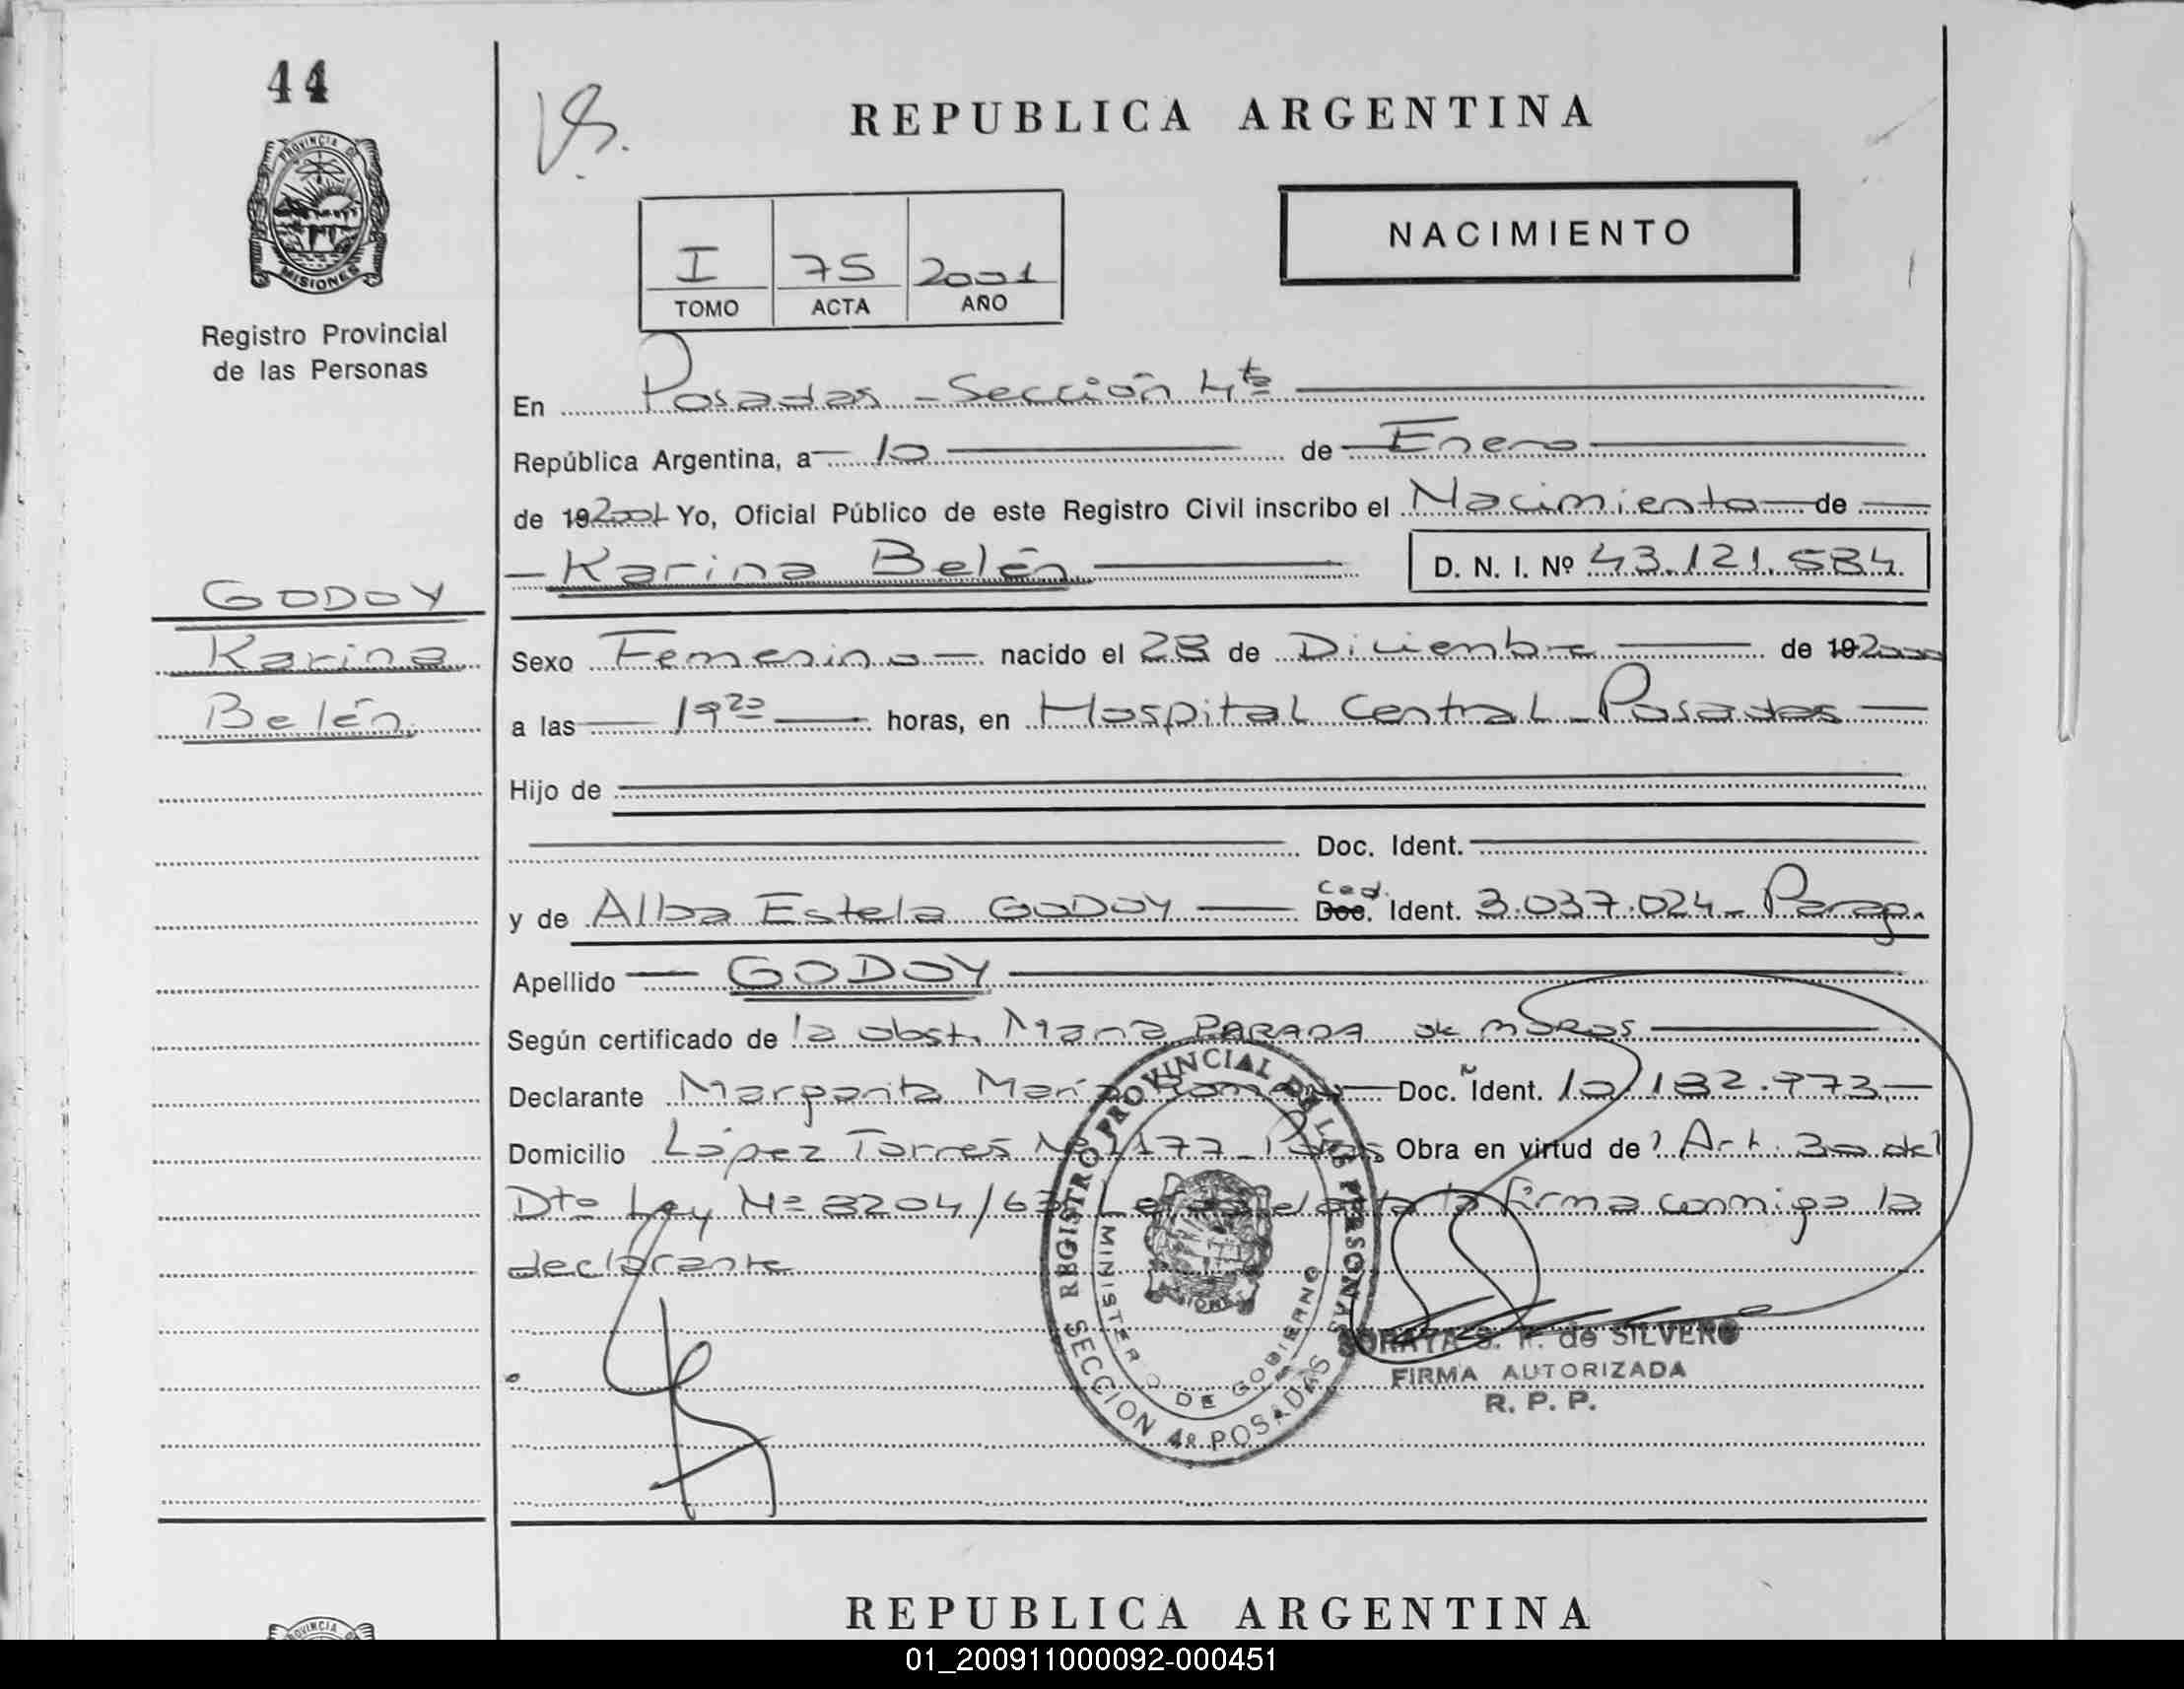 44
PROVINCIA DE
MISIONES
Registro Provincial
de las Personas
REPUBLICA ARGENTINA
NACIMIENTO
I 75 2001
TOMO ACTA AÑO
En Posadas - Sección 4ta
República Argentina, a 10 de Enero
de 192001 Yo, Oficial Público de este Registro Civil inscribo el Nacimiento de
Karina Belén D. N. I. Nº 43.121.584
GODOY
Karina
Belén
Sexo Femenino nacido el 28 de Diciembre de 192000
a las 19 20 horas, en Hospital Central - Posadas
Hijo de
Doc. Ident.
y de Alba Estela GODOY Ced. Doc. Ident. 3.037.024 - Parag.
Apellido GODOY
Según certificado de la obst. María PARADA de MOROS
Declarante Margarita María Doc. Ident. 10.182.973
Domicilio López Torres Nº 1177 - Pdas Obra en virtud de Art. 30 del
Dto Ley Nº 8204/63 Leída el acta la firma conmigo la
declarante
REGISTRO PROVINCIAL DE LAS PERSONAS
MINISTERIO DE GOBIERNO
SECCION 4º POSADAS
SORAYA S. de SILVERO
FIRMA AUTORIZADA
R. P. P.
REPUBLICA ARGENTINA
01_200911000092-000451